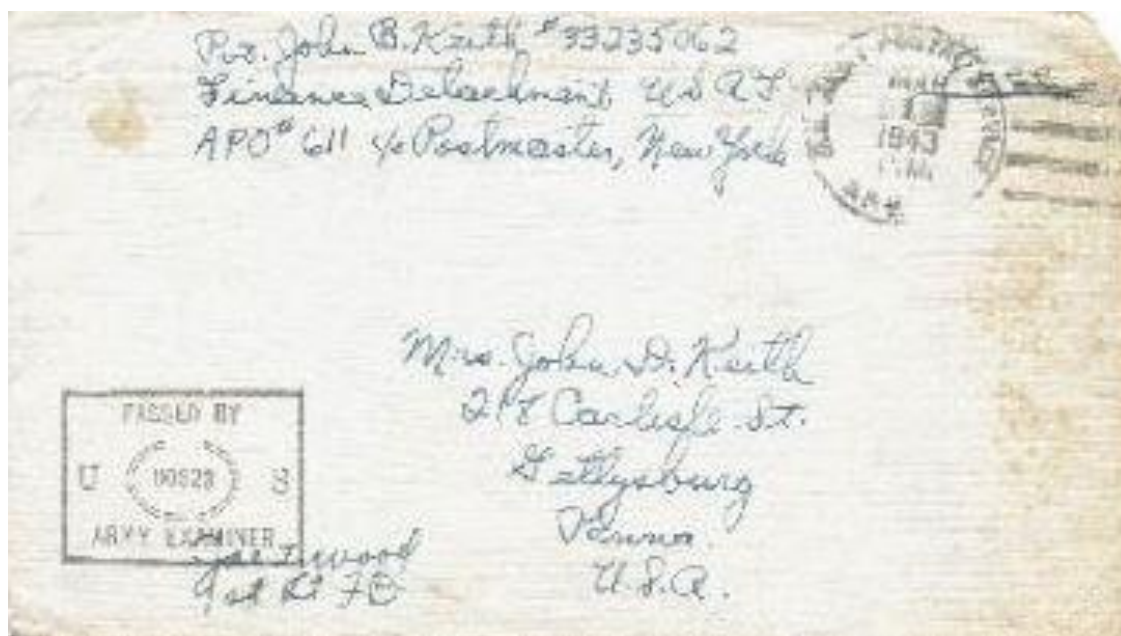 Pvt. John B. Keith #33235062
Finance Detachment USAF
APO # 611 c/o Postmaster, New York
1943
Mrs. John D. Keith
Carlisle St.
Gettysburg
Penna.
U.S.A.
PASSED BY
U S
ARMY EXAMINER
wood
1st Lt FD